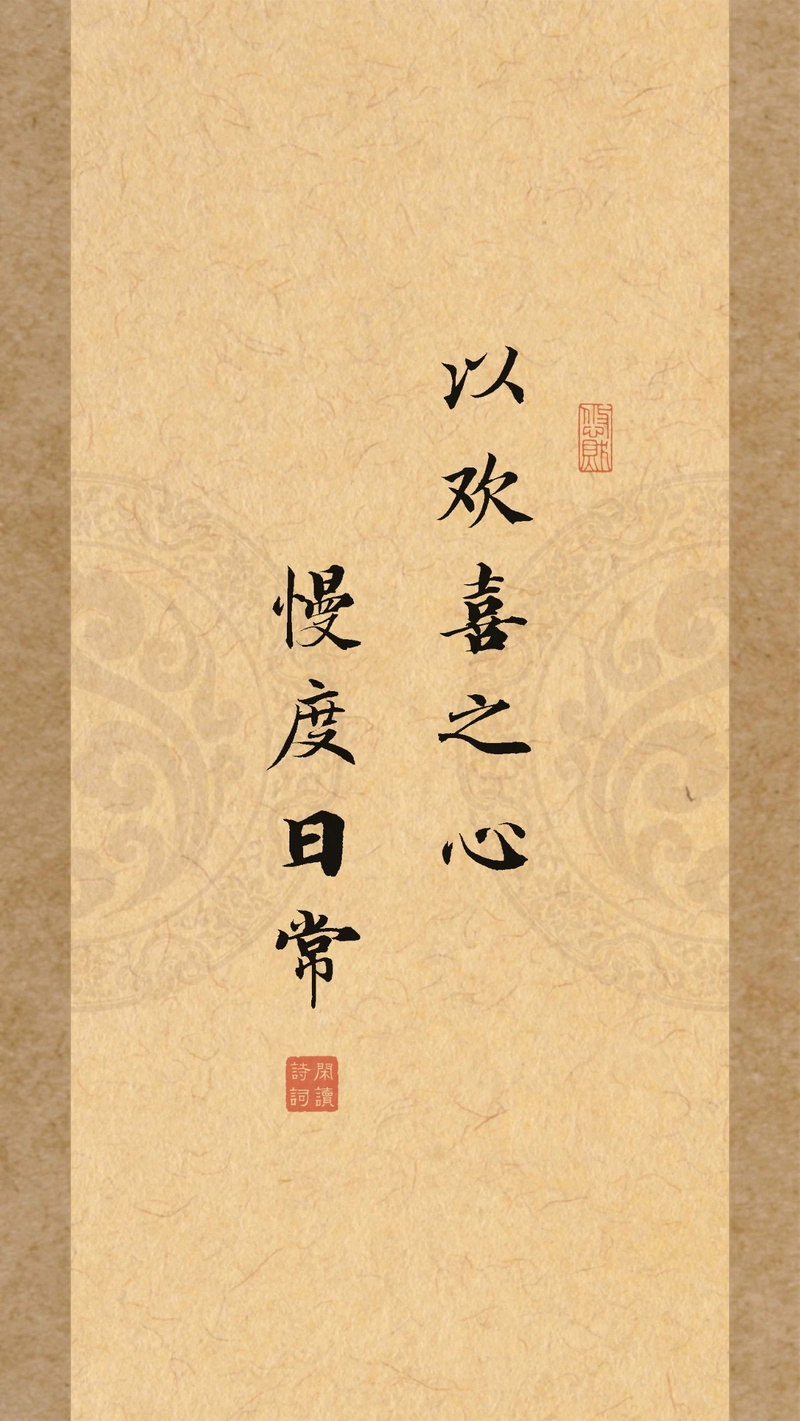 以欢喜之心
慢度日常
閑讀
詩詞